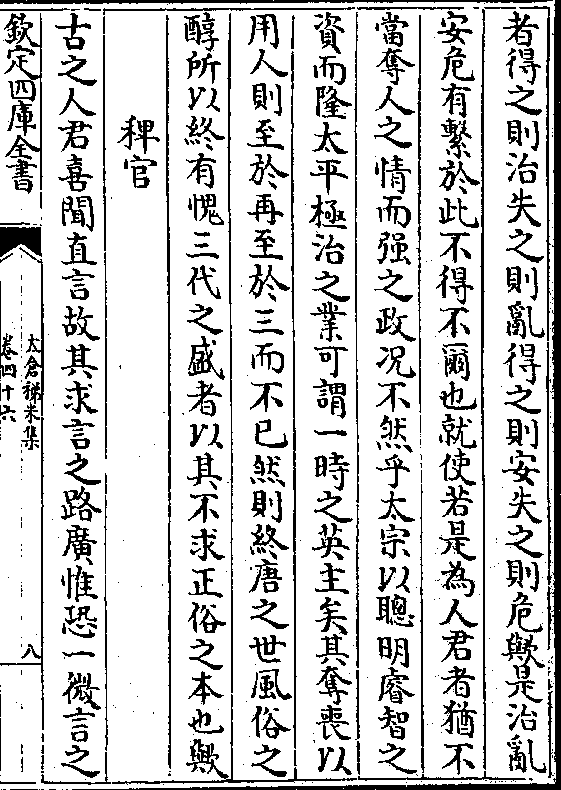 者得之則治失之則亂得之則安失之則危歟是治亂
安危有繫於此不得不爾也就使若是為人君者猶不
當奪人之情而强之政况不然乎太宗以聰明睿智之
資而隆太平極治之業可謂一時之英主矣其奪喪以
用人則至於再至於三而不已然則終唐之世風俗之
醇所以終有愧三代之盛者以其不求正俗之本也歟
稗官
古之人君喜聞直言故其求言之路廣惟恐一微言之
欽定四庫全書
太倉稊米集
卷四十六
八